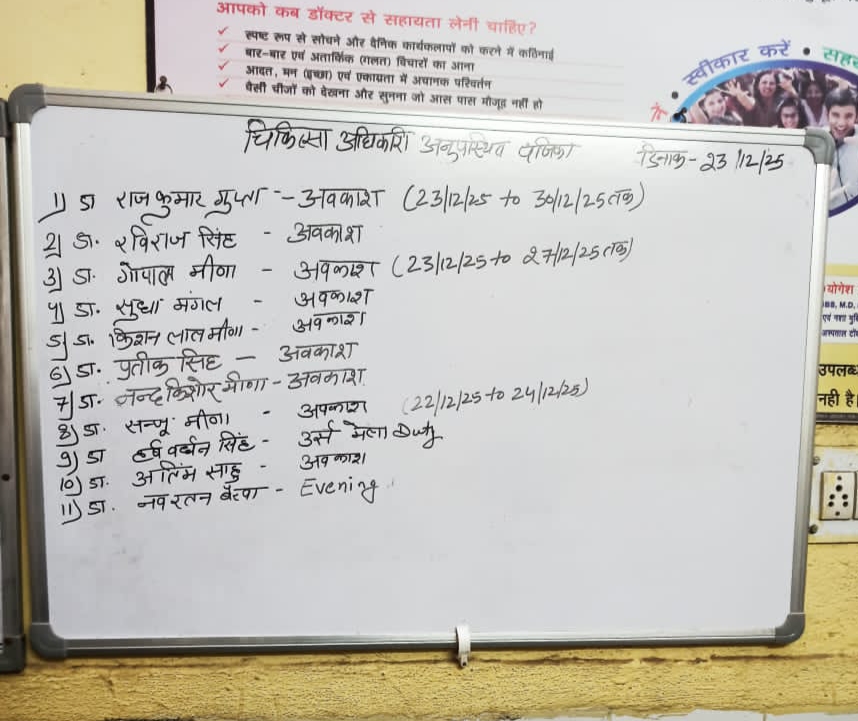 आपको कब डॉक्टर से सहायता लेनी चाहिए?
✓ स्पष्ट रूप से सोचने और दैनिक कार्यकलापों को करने में कठिनाई
✓ बार-बार एवं अतार्किक (गलत) विचारों का आना
✓ आदत, मन (इच्छा) एवं एकाग्रता में अचानक परिवर्तन
✓ वैसी चीजों को देखना और सुनना जो आस पास मौजूद नहीं हो
• स्वीकार करें •
चिकित्सा अधिकारी अनुपस्थित पंजिका दिनांक - 23/12/25
1) डा राजकुमार गुप्ता - अवकाश (23/12/25 to 30/12/25 तक)
2) डा. रविराज सिंह - अवकाश
3) डा. गोपाल मीणा - अवकाश (23/12/25 to 27/12/25 तक)
4) डा. सुधा मंगल - अवकाश
5) डा. किशन लाल मीणा - अवकाश
6) डा. प्रतीक सिंह - अवकाश
7) डा. नन्द किशोर मीणा - अवकाश
8) डा. सन्जू मीणा - अवकाश (22/12/25 to 24/12/25)
9) डा हर्ष वर्धन सिंह - उर्स मेला Duty
10) डा. अंतिम साहु - अवकाश
11) डा. नवरतन बैरवा - Evening
योगेश
BBS, M.D.
उपलब्ध
नही है